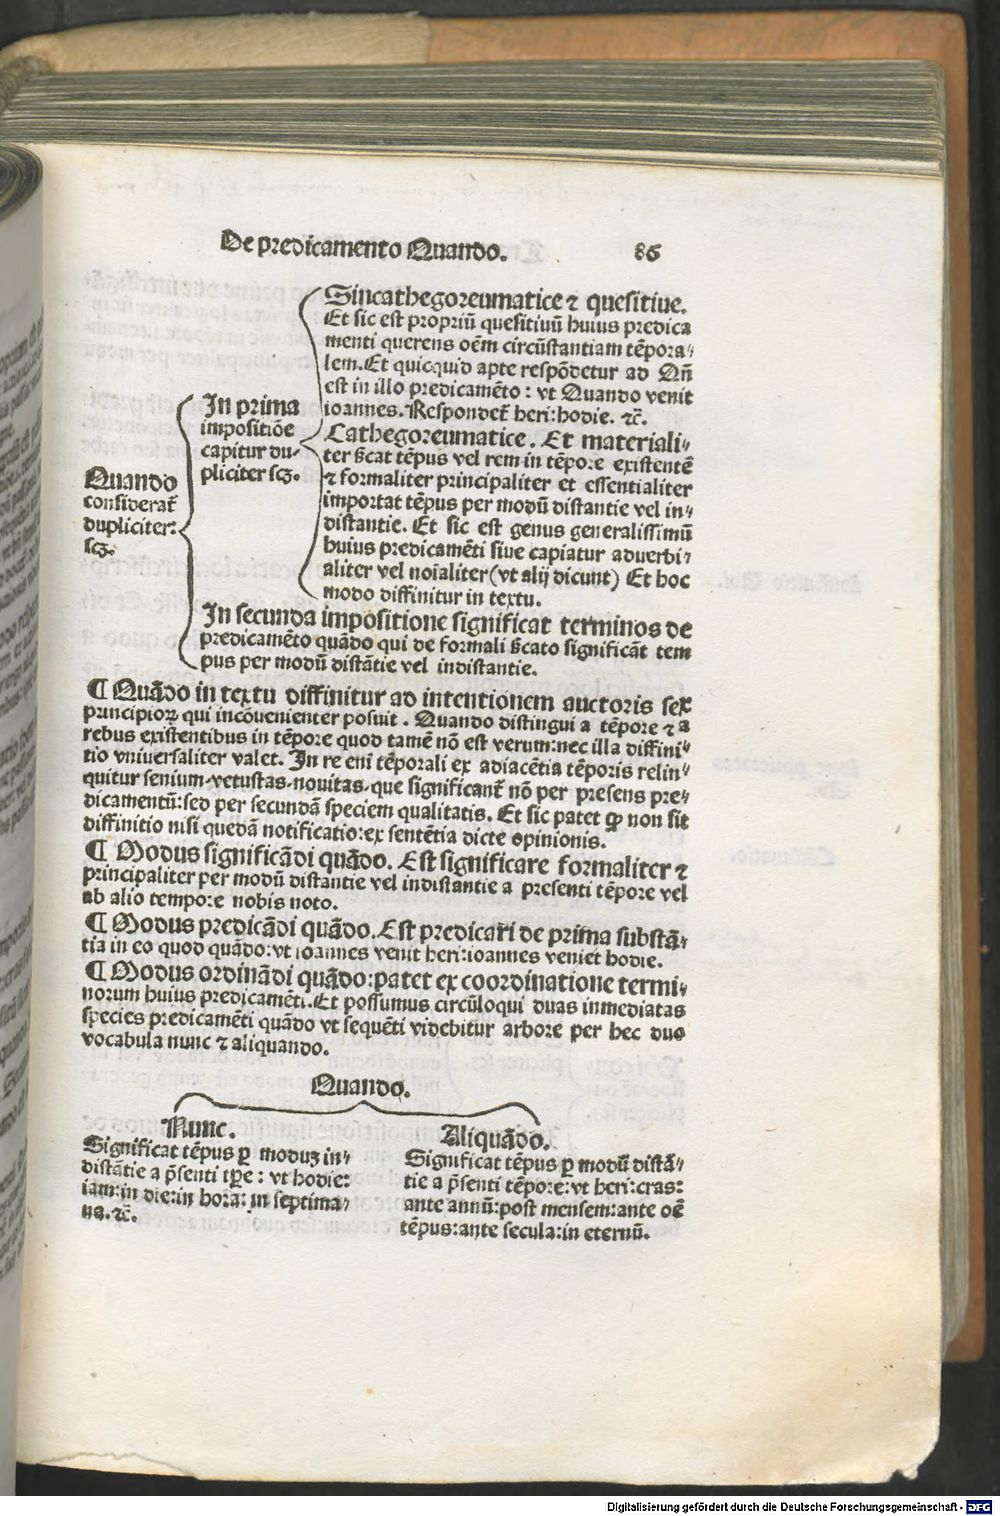 De predicamento Quando. 86
Sincathegoreumatice ⁊ quesitiue.
Et sic est propriū quesitiuū huius predica
menti querens oēm circūstantiam tēpora⸗
lem. Et quicquid apte respōdetur ad Qñ
est in illo predicamēto : vt Quando venit
ioannes. Respondet᷑ heri: hodie. ⁊c̄.
In prima
impositiōe
capitur du⸗
pliciter scꝫ.
Cathegoreumatice. Et materiali⸗
ter s̄cat tēpus vel rem in tēpore existentē
⁊ formaliter principaliter et essentialiter
importat tēpus per modū distantie vel in⸗
distantie. Et sic est genus generalissimū
huius predicamēti siue capiatur aduerbi⸗
aliter vel noīaliter (vt alij dicunt) Et hoc
modo diffinitur in textu.
Quando
considerat᷑
dupliciter:
scꝫ.
In secunda impositione significat terminos de
predicamēto quādo qui de formali s̄cato significāt tem
pus per modū distātie vel indistantie.
¶ Quādo in textu diffinitur ad intentionem auctoris sex
principioꝝ qui incōuenienter posuit . Quando distingui a tēpore ⁊ a
rebus existentibus in tēpore quod tamē nō est verum: nec illa diffini⸗
tio vniuersaliter valet. In re eni tēporali ex adiacētia tēporis relin⸗
quitur senium. vetustas. nouitas. que significant᷑ nō per presens pre⸗
dicamentū: sed per secundā speciem qualitatis. Et sic patet ꝙ non sit
diffinitio nisi quedā notificatio: ex sentētia dicte opinionis.
¶ Modus significādi quādo. Est significare formaliter ⁊
principaliter per modū distantie vel indistantie a presenti tēpore vel
ab alio tempore nobis noto.
¶ Modus predicādi quādo. Est predicari de prima substā⸗
tia in eo quod quādo: vt ioannes venit heri: ioannes veniet hodie.
¶ Modus ordinādi quādo: patet ex coordinatione termi⸗
norum huius predicamēti. Et possumus circūloqui duas inmediatas
species predicamēti quādo vt sequēti videbitur arbore per hec duo
vocabula nunc ⁊ aliquando.
Quando.
Nunc.
Significat tēpus ꝑ moduꝫ in⸗
distātie a p̄senti tꝑe : vt hodie:
iam: in die: in hora: in septima⸗
na. ⁊c̄.
Aliquādo.
Significat tēpus ꝑ modū distā⸗
tie a p̄senti tēpore: vt heri: cras:
ante annū: post mensem: ante oē
tēpus: ante secula: in eternū.
Digitalisierung gefördert durch die Deutsche Forschungsgemeinschaft - DFG